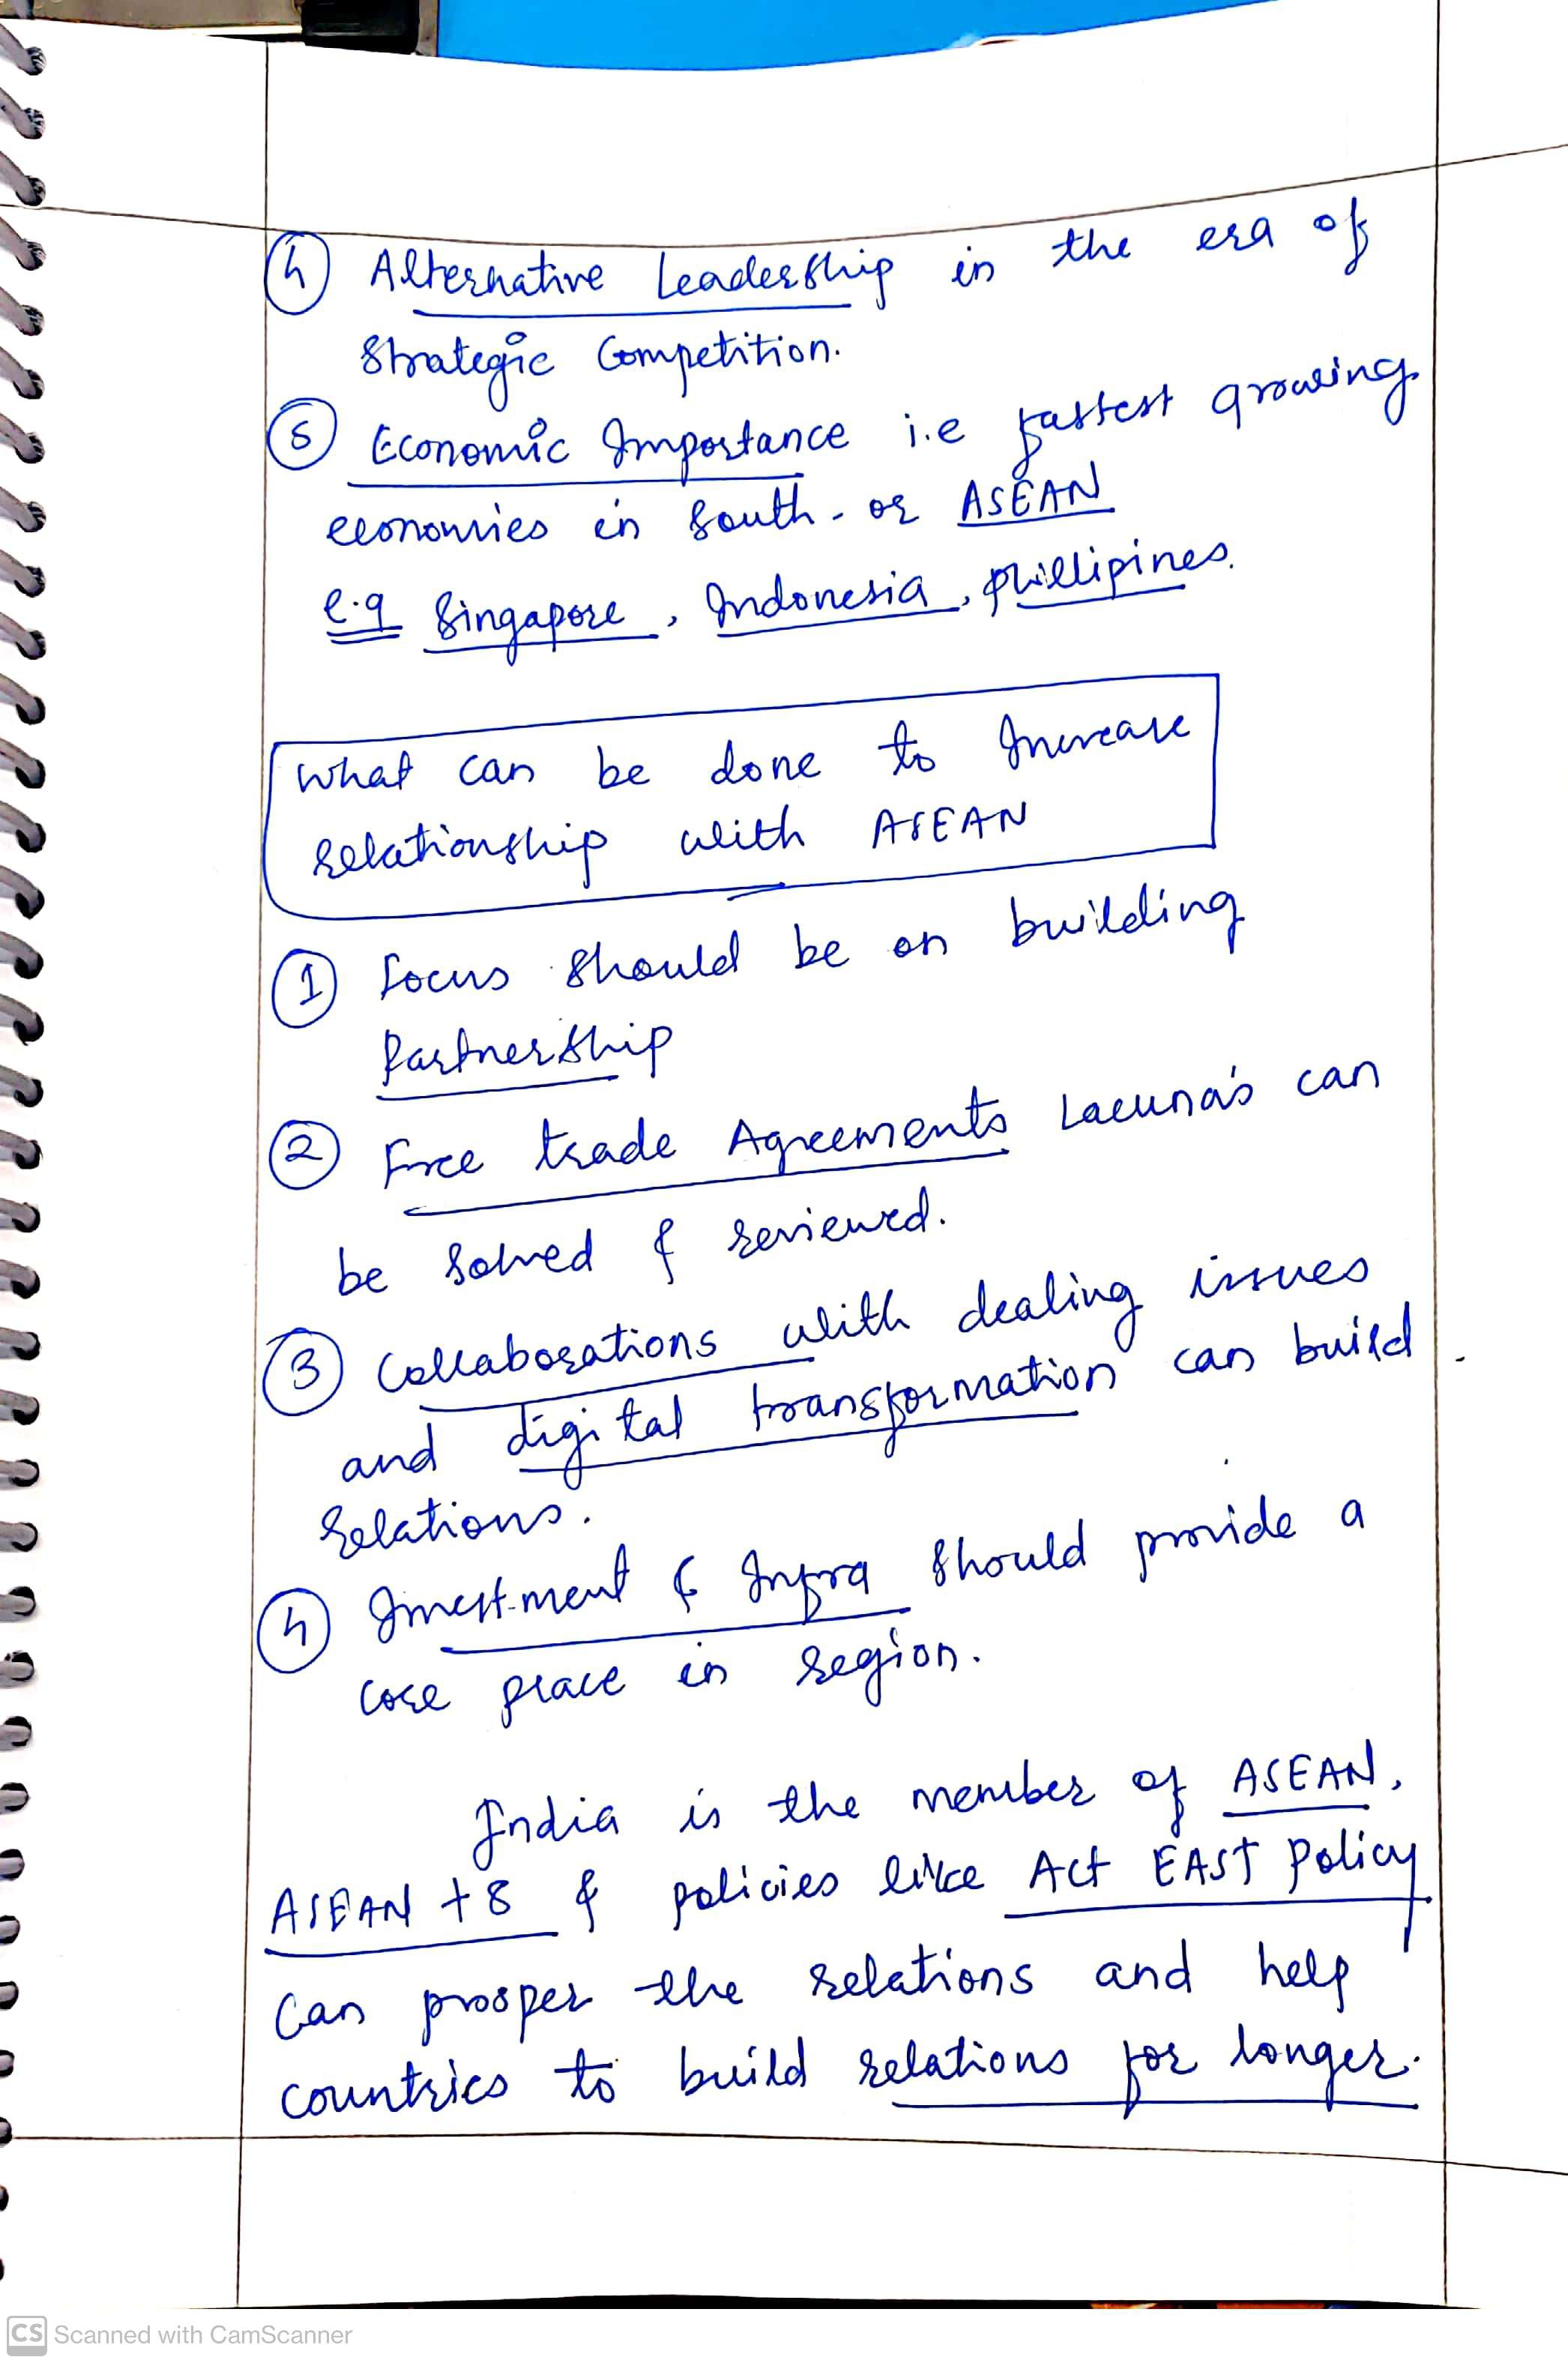 ④ Alternative Leadership in the era of
Strategic Competition.
⑤ Economic Importance i.e fastest growing
economies in South - or ASEAN
e.g Singapore, Indonesia, phillipines.
What can be done to Increase
relationship with ASEAN
① Focus should be on building
Partnership
② Free trade Agreements Lacuna's can
be solved & reviewed.
③ Collaborations with dealing issues
and digital transformation can build
relations.
④ Investment & Infra should provide a
core place in region.
India is the member of ASEAN,
ASEAN +8 & policies like Act EAST Policy
Can prosper the relations and help
countries to build relations for longer.
CS Scanned with CamScanner